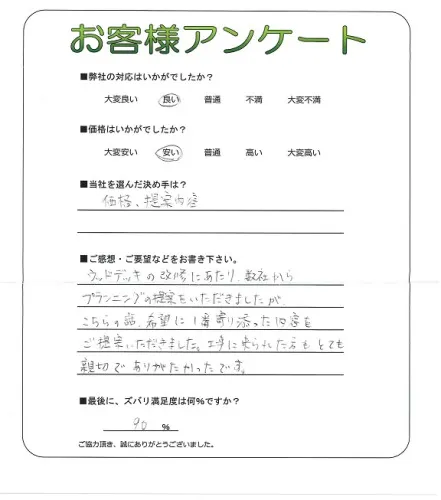 お客様アンケート
■弊社の対応はいかがでしたか?
大変良い 良い 普通 不満 大変不満
■価格はいかがでしたか?
大変安い 安い 普通 高い 大変高い
■当社を選んだ決め手は?
価格、提案内容
■ご感想・ご要望などをお書き下さい。
ウッドデッキの改修にあたり、数社から
プランニングの提案をいただきましたが、
こちらの話、希望に1番寄り添った内容を
ご提案いただきました。工事に来られた方もとても
親切でありがたかったです。
■最後に、ズバリ満足度は何%ですか?
90 %
ご協力頂き、誠にありがとうございました。